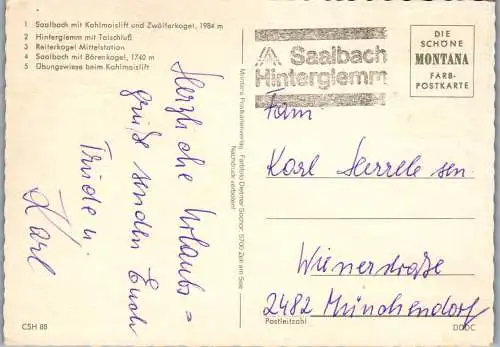 1 Saalbach mit Kohlmaislift und Zwölferkogel, 1984 m
2 Hinterglemm mit Talschluß
3 Reiterkogel Mittelstation
4 Saalbach mit Bärenkogel, 1740 m
5 Übungswiese beim Kohlmaislift
Herzliche Urlaubs=
grüße senden Euch
Trude u
Karl
CSH 88
Montana Postkartenverlag Farbfoto Dietmar Sochor, 5700 Zell am See
Nachdruck verboten!
Saalbach
Hinterglemm
DIE
SCHÖNE
MONTANA
FARB-
POSTKARTE
Fam
Karl Herrele sen.
Wienerstraße
2482 Münchendorf
Postleitzahl
DDDC